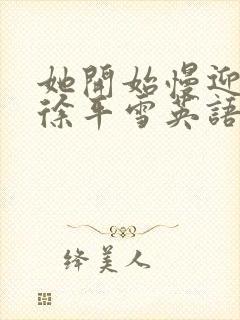 她開始慢迎
徐平雪英語
绛美人